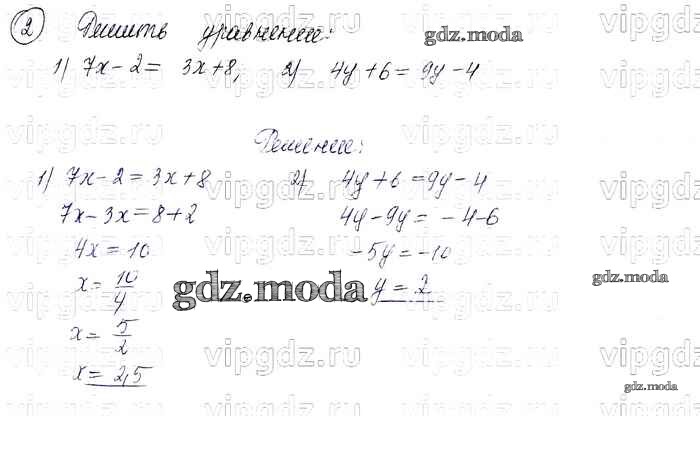 2 Решить уравнение:
1) 7x-2= 3x+8, 2) 4y+6= 9y-4
Решение:
1) 7x-2=3x+8
7x-3x=8+2
4x=10
x=10/4
x=5/2
x=2,5
2) 4y+6=9y-4
4y-9y= -4-6
-5y=-10
y=2
gdz.moda
gdz.moda
gdz.moda
gdz.moda
vipgdz.ru